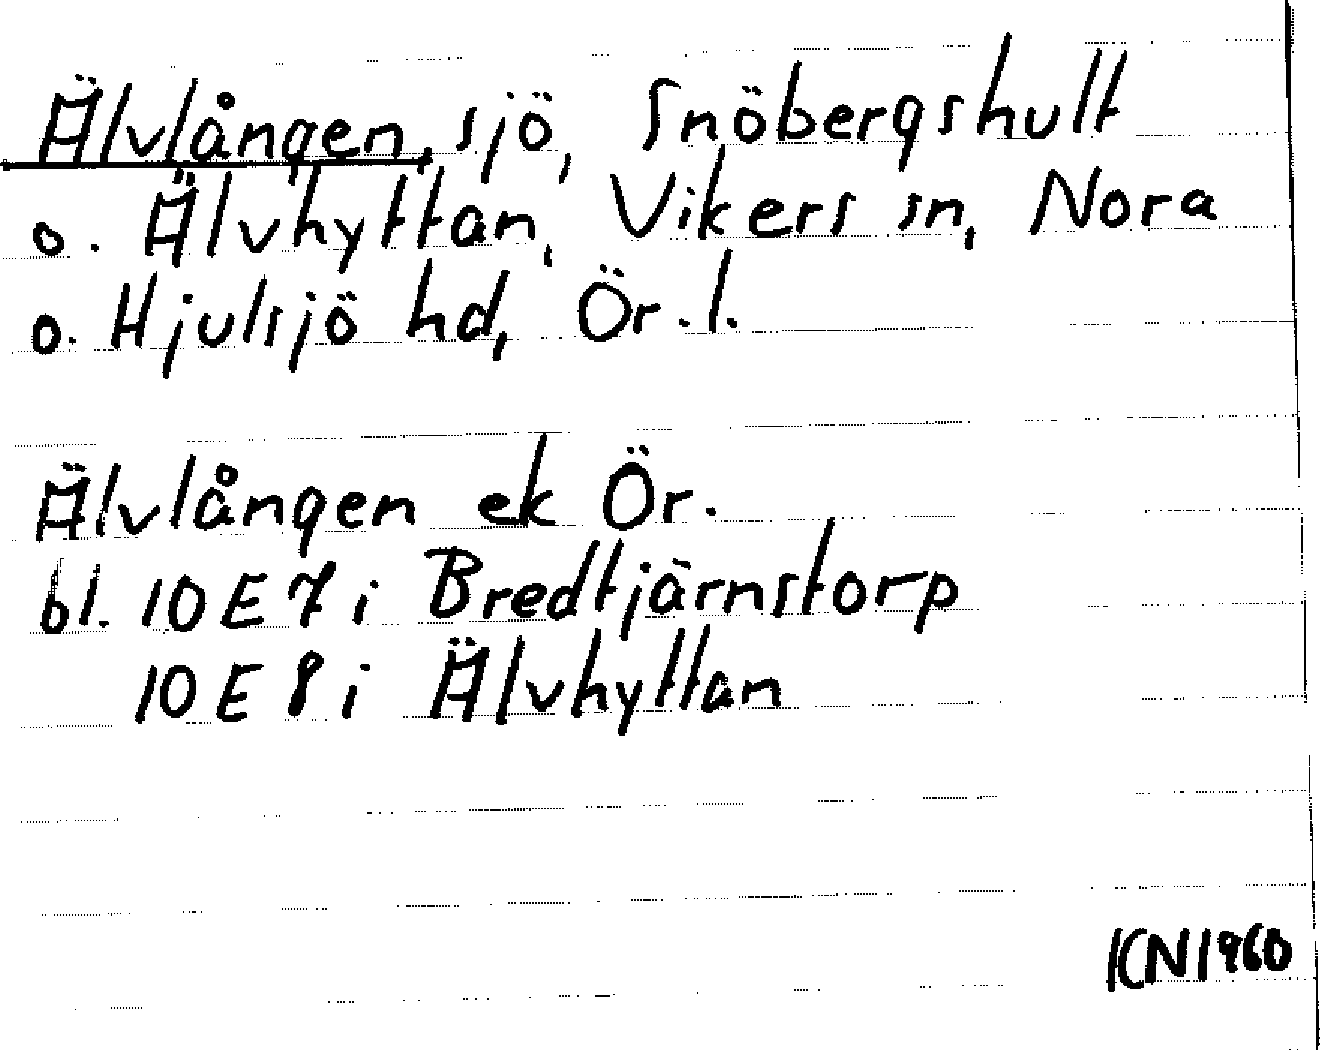 Älvlången, sjö, Snöbergshult
o. Älvhyttan, Vikers sn, Nora
o. Hjulsjö hd, Ör. l.
Älvlången ek Ör.
bl. 10 E 7 i Bredtjärnstorp
10 E 8 i Älvhyttan
KN 1960